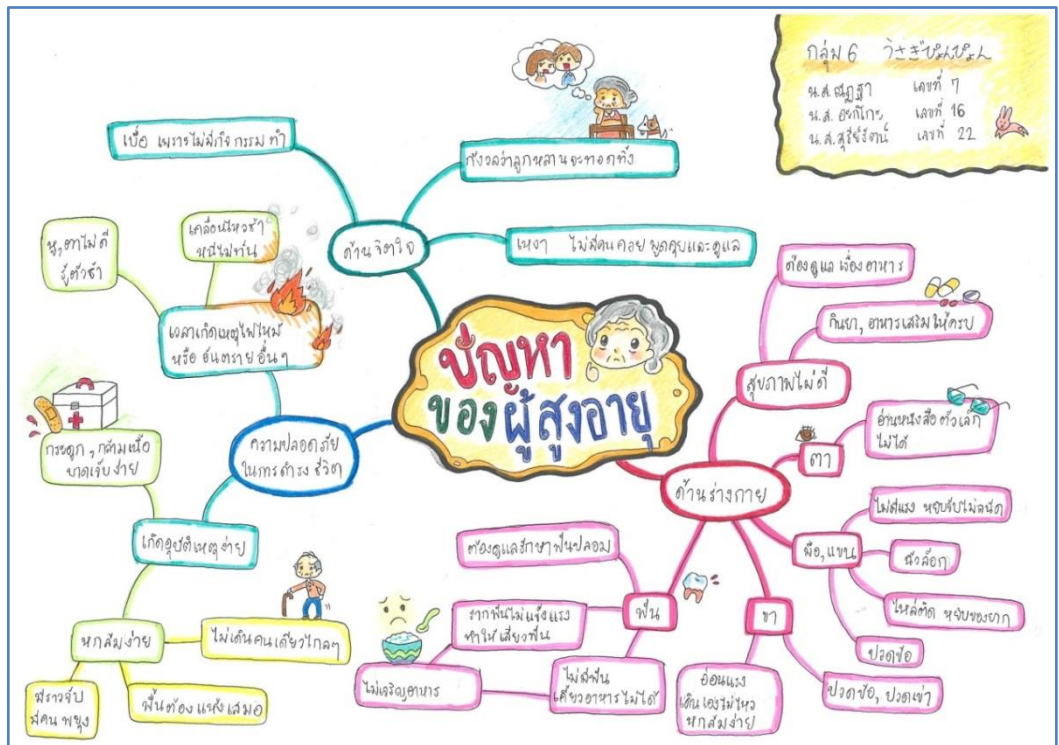 กลุ่ม 6
น.ส. ณัฏฐา เลขที่ 7
น.ส. เลขที่ 16
น.ส. สุรีย์รัตน์ เลขที่ 22
ปัญหา
ของผู้สูงอายุ
ด้านจิตใจ
เบื่อ เพราะไม่มีกิจกรรมทำ
กังวลว่าลูกหลานจะทอดทิ้ง
เหงา ไม่มีคนคอยพูดคุยและดูแล
ความปลอดภัย
ในการดำรงชีวิต
เวลาเกิดเหตุไฟไหม้
หรือ อันตรายอื่นๆ
หู,ตาไม่ดี
รู้ตัวช้า
เคลื่อนไหวช้า
หนีไม่ทัน
เกิดอุบัติเหตุง่าย
กระดูก,กล้ามเนื้อ
บาดเจ็บง่าย
หกล้มง่าย
ไม่เดินคนเดียวไกลๆ
พื้นต้องแห้งเสมอ
มีราวจับ
มีคนพยุง
ด้านร่างกาย
สุขภาพไม่ดี
ต้องดูแลเรื่องอาหาร
กินยา,อาหารเสริมให้ครบ
ตา
อ่านหนังสือตัวเล็ก
ไม่ได้
มือ,แขน
ไม่มีแรง หยิบจับไม่ถนัด
นิ้วล็อก
ไหล่ติด หยิบของยาก
ปวดข้อ
ขา
ปวดข้อ,ปวดเข่า
อ่อนแรง
เดินเองไม่ไหว
หกล้มง่าย
ฟัน
ต้องดูแลรักษาฟันปลอม
รากฟันไม่แข็งแรง
ทำให้เสียวฟัน
ไม่มีฟัน
เคี้ยวอาหารไม่ได้
ไม่เจริญอาหาร